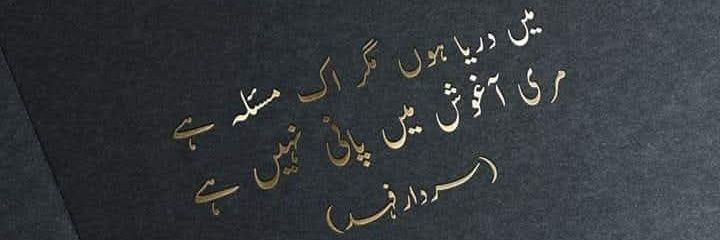 میں دریا ہوں مگر اک مسئلہ ہے
مری آغوش میں پانی نہیں ہے
(سردار فہد)